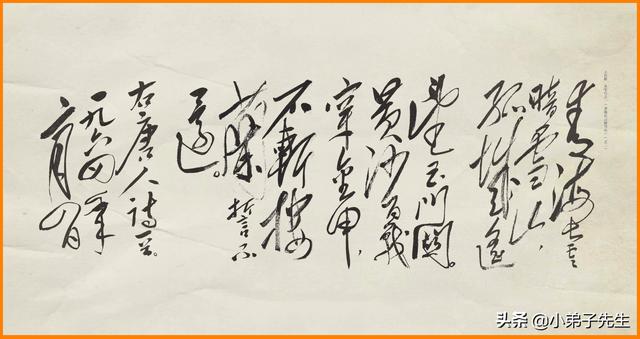 青海长云
暗雪山，
孤城遥
望玉门關。
黄沙百战
穿金甲，
不斬樓
蘭誓不
還。
右唐人诗一首。
一九六四年
月日
头条 @小弟子先生